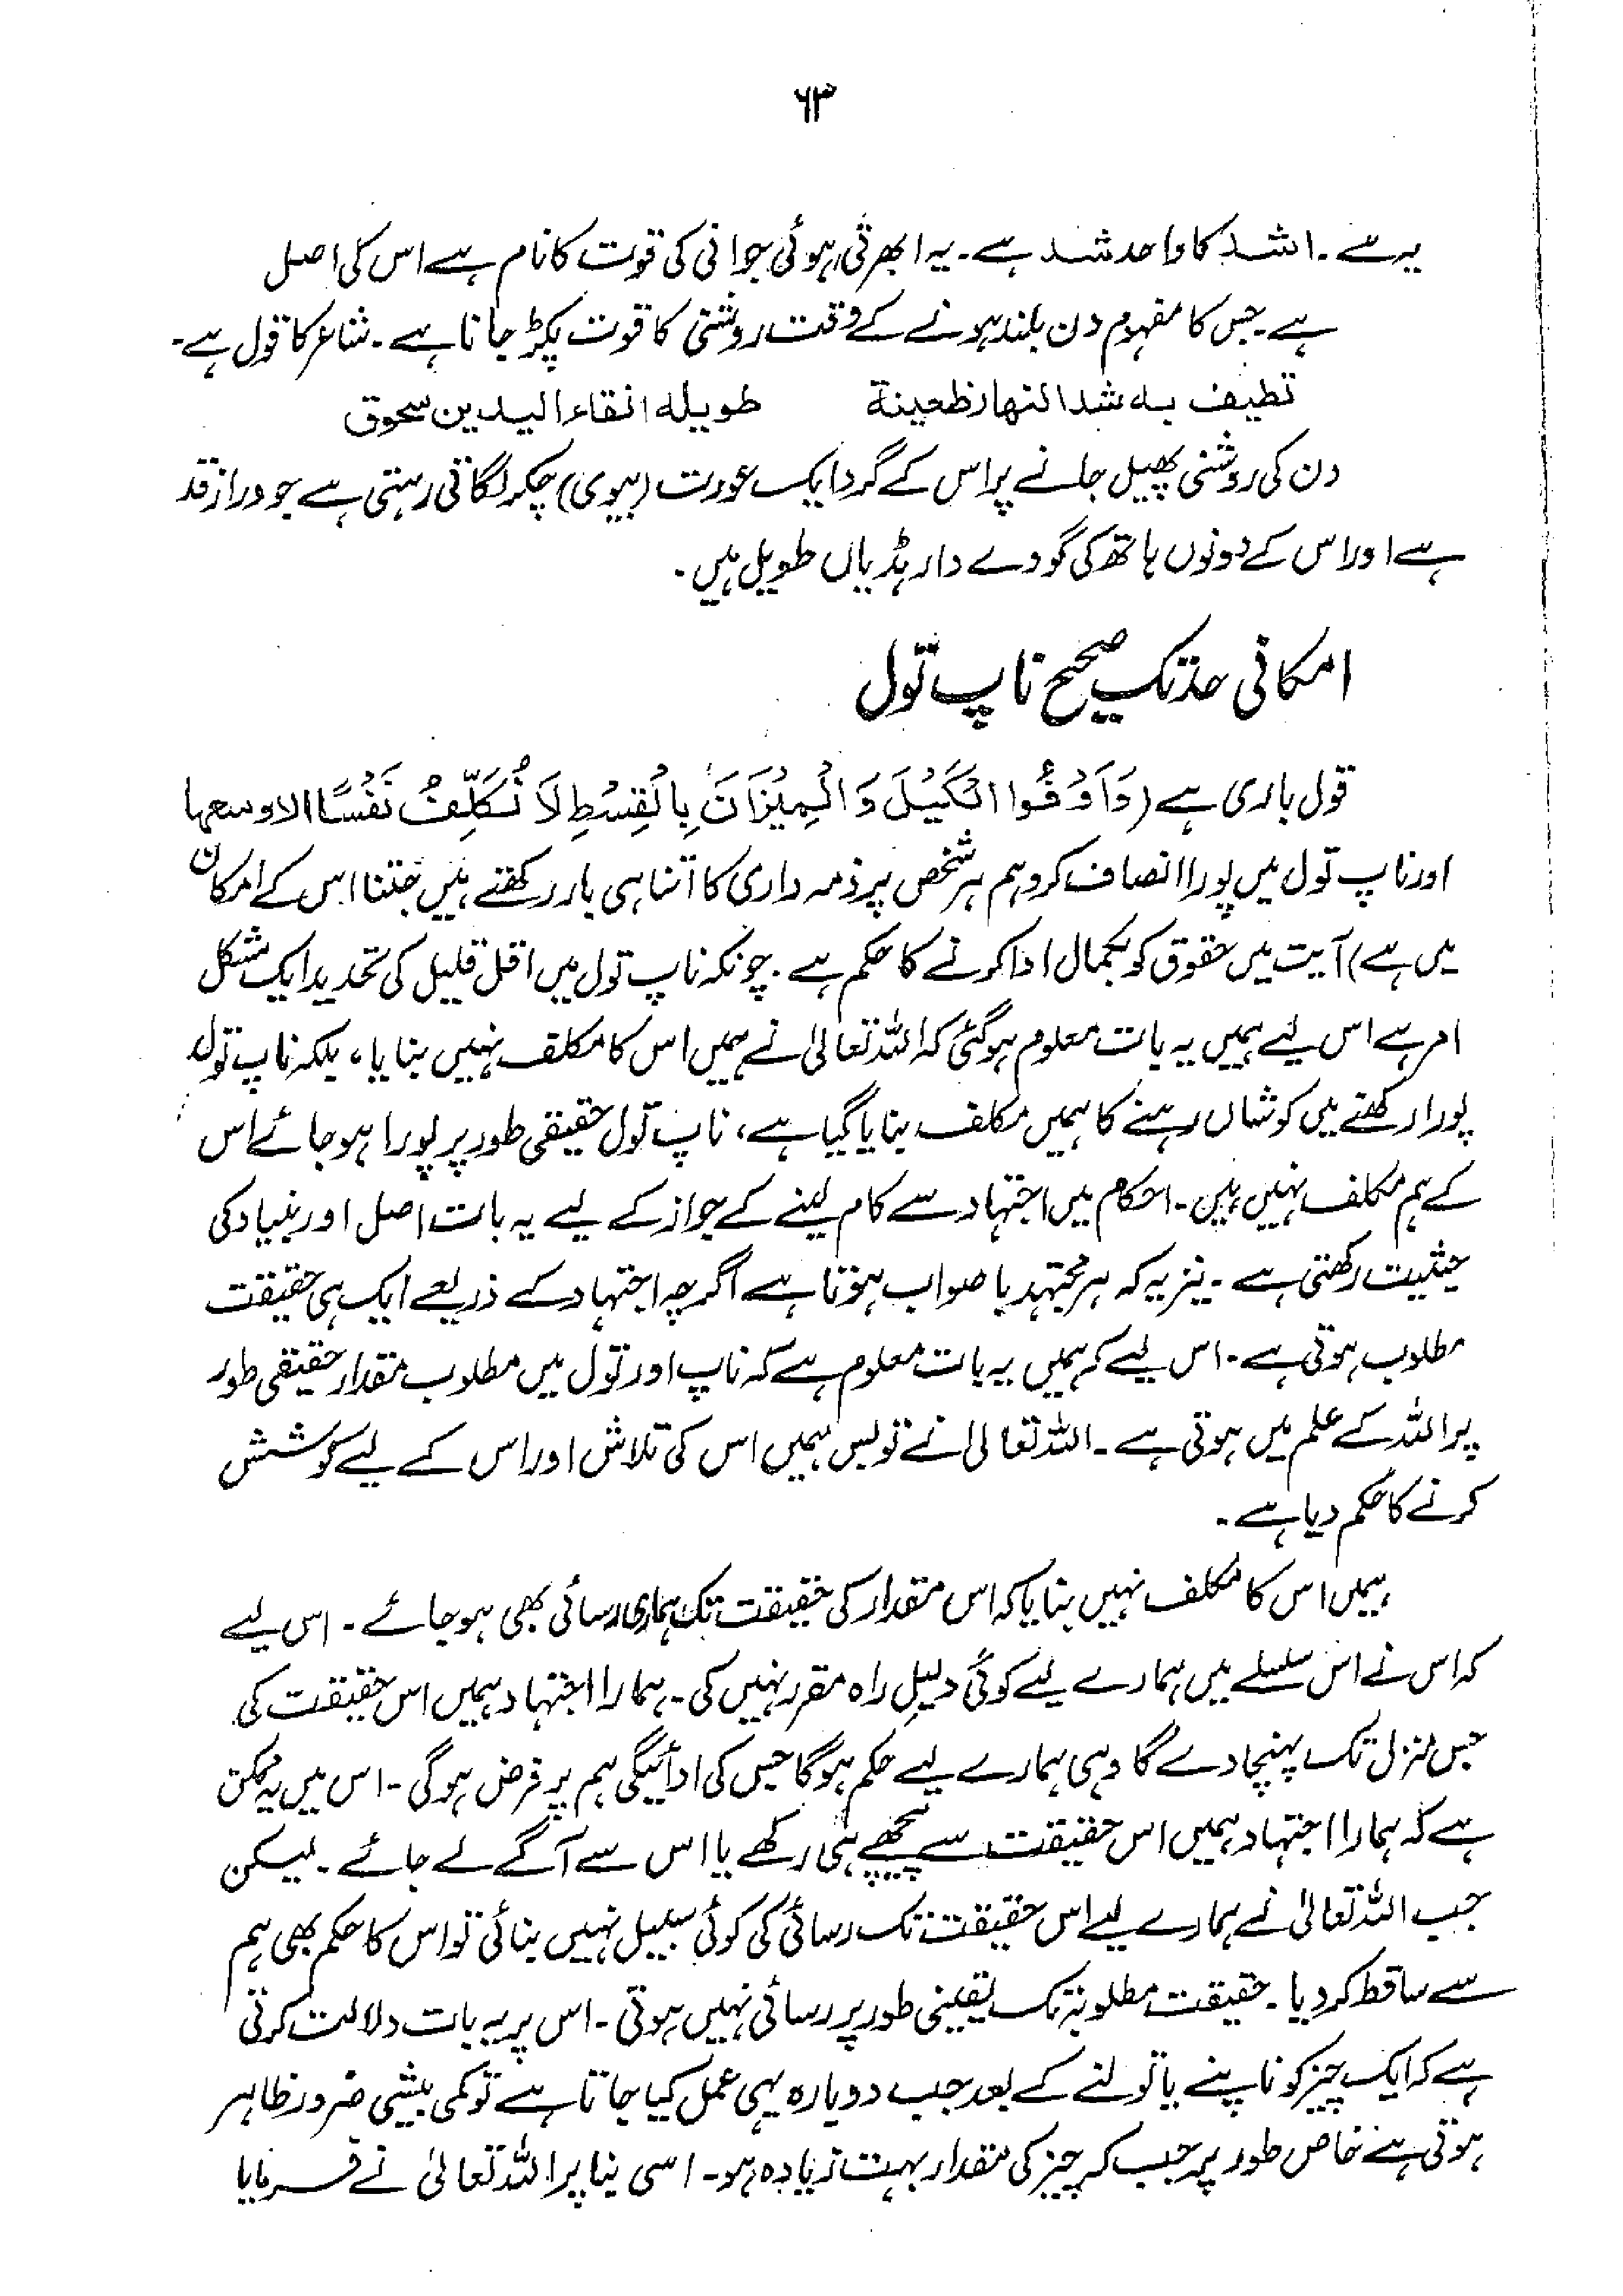 ۶۳
یہ سے ۔ اشد کا واحد شد ہے ۔ یہ ابھرتی ہوئی جوانی کی قوت کا نام ہے اس کی اصل
ہے جس کا مفہوم دن بلند ہونے کے وقت روشنی کا قوت پکڑ جانا ہے ۔ شاعر کا قول ہے ۔
تطیف بہ شد النھار ظعینة طویلہ انقاء الیدین سحوق
دن کی روشنی پھیل جانے پر اس کے گرد ایک عورت (بیوی) چکر لگاتی رہتی ہے جو دراز قد
ہے اور اس کے دونوں ہاتھ کی گودے دار ہڈیاں طویل ہیں ۔
امکانی حد تک صحیح ناپ تول
قول باری ہے (وَاَوْفُوا الْکَیْلَ وَالْمِیْزَانَ بِالْقِسْطِ لَا نُکَلِّفُ نَفْسًا الا وسعہا
اور ناپ تول میں پورا انصاف کرو ہم ہر شخص پر ذمہ داری کا اتنا ہی بار رکھتے ہیں جتنا اس کے امکان
میں ہے) آیت میں حقوق کو بکمال ادا کرنے کا حکم ہے ۔ چونکہ ناپ تول میں اقل قلیل کی تحدید ایک مشکل
امر ہے اس لیے ہمیں یہ بات معلوم ہوگئی کہ اللہ تعالیٰ نے ہمیں اس کا مکلف نہیں بنایا، بلکہ ناپ تول
پورا رکھنے میں کوشاں رہنے کا ہمیں مکلف بنایا گیا ہے، ناپ تول حقیقی طور پر پورا ہو جائے اس
کے ہم مکلف نہیں ہیں ۔ احکام میں اجتہاد سے کام لینے کے جواز کے لیے یہ بات اصل اور بنیاد کی
حیثیت رکھتی ہے ۔ نیز یہ کہ ہر مجتہد با صواب ہوتا ہے اگرچہ اجتہاد کے ذریعے ایک ہی حقیقت
مطلوب ہوتی ہے ۔ اس لیے کہ ہمیں یہ بات معلوم ہے کہ ناپ اور تول میں مطلوب مقدار حقیقی طور
پر اللہ کے علم میں ہوتی ہے ۔ اللہ تعالیٰ نے تو بس ہمیں اس کی تلاش اور اس کے لیے کوشش
کرنے کا حکم دیا ہے ۔
ہمیں اس کا مکلف نہیں بنایا کہ اس مقدار کی حقیقت تک ہماری رسائی بھی ہو جائے ۔ اس لیے
کہ اس نے اس سلسلے میں ہمارے لیے کوئی دلیلِ راہ مقرر نہیں کی ۔ ہمارا اجتہاد ہمیں اس حقیقت کی
جس منزل تک پہنچا دے گا وہی ہمارے لیے حکم ہوگا جس کی ادائیگی ہم پر فرض ہوگی ۔ اس میں یہ ممکن
ہے کہ ہمارا اجتہاد ہمیں اس حقیقت سے پیچھے ہی رکھے یا اس سے آگے لے جائے ۔ لیکن
جب اللہ تعالیٰ نے ہمارے لیے اس حقیقت تک رسائی کی کوئی سبیل نہیں بنائی تو اس کا حکم بھی ہم
سے ساقط کر دیا ۔ حقیقت مطلوبہ تک یقینی طور پر رسائی نہیں ہوتی ۔ اس پر یہ بات دلالت کرتی
ہے کہ ایک چیز کو ناپنے یا تولنے کے بعد جب دوبارہ یہی عمل کیا جاتا ہے تو کمی بیشی ضرور ظاہر
ہوتی ہے خاص طور پر جب کہ چیز کی مقدار بہت زیادہ ہو ۔ اسی بنا پر اللہ تعالیٰ نے فرمایا